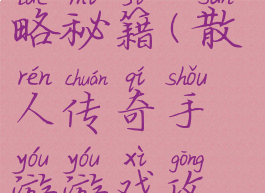 略秘籍(散
rén chuán qí shǒu
人传奇手
yóu yóu xì gōng
游游戏攻